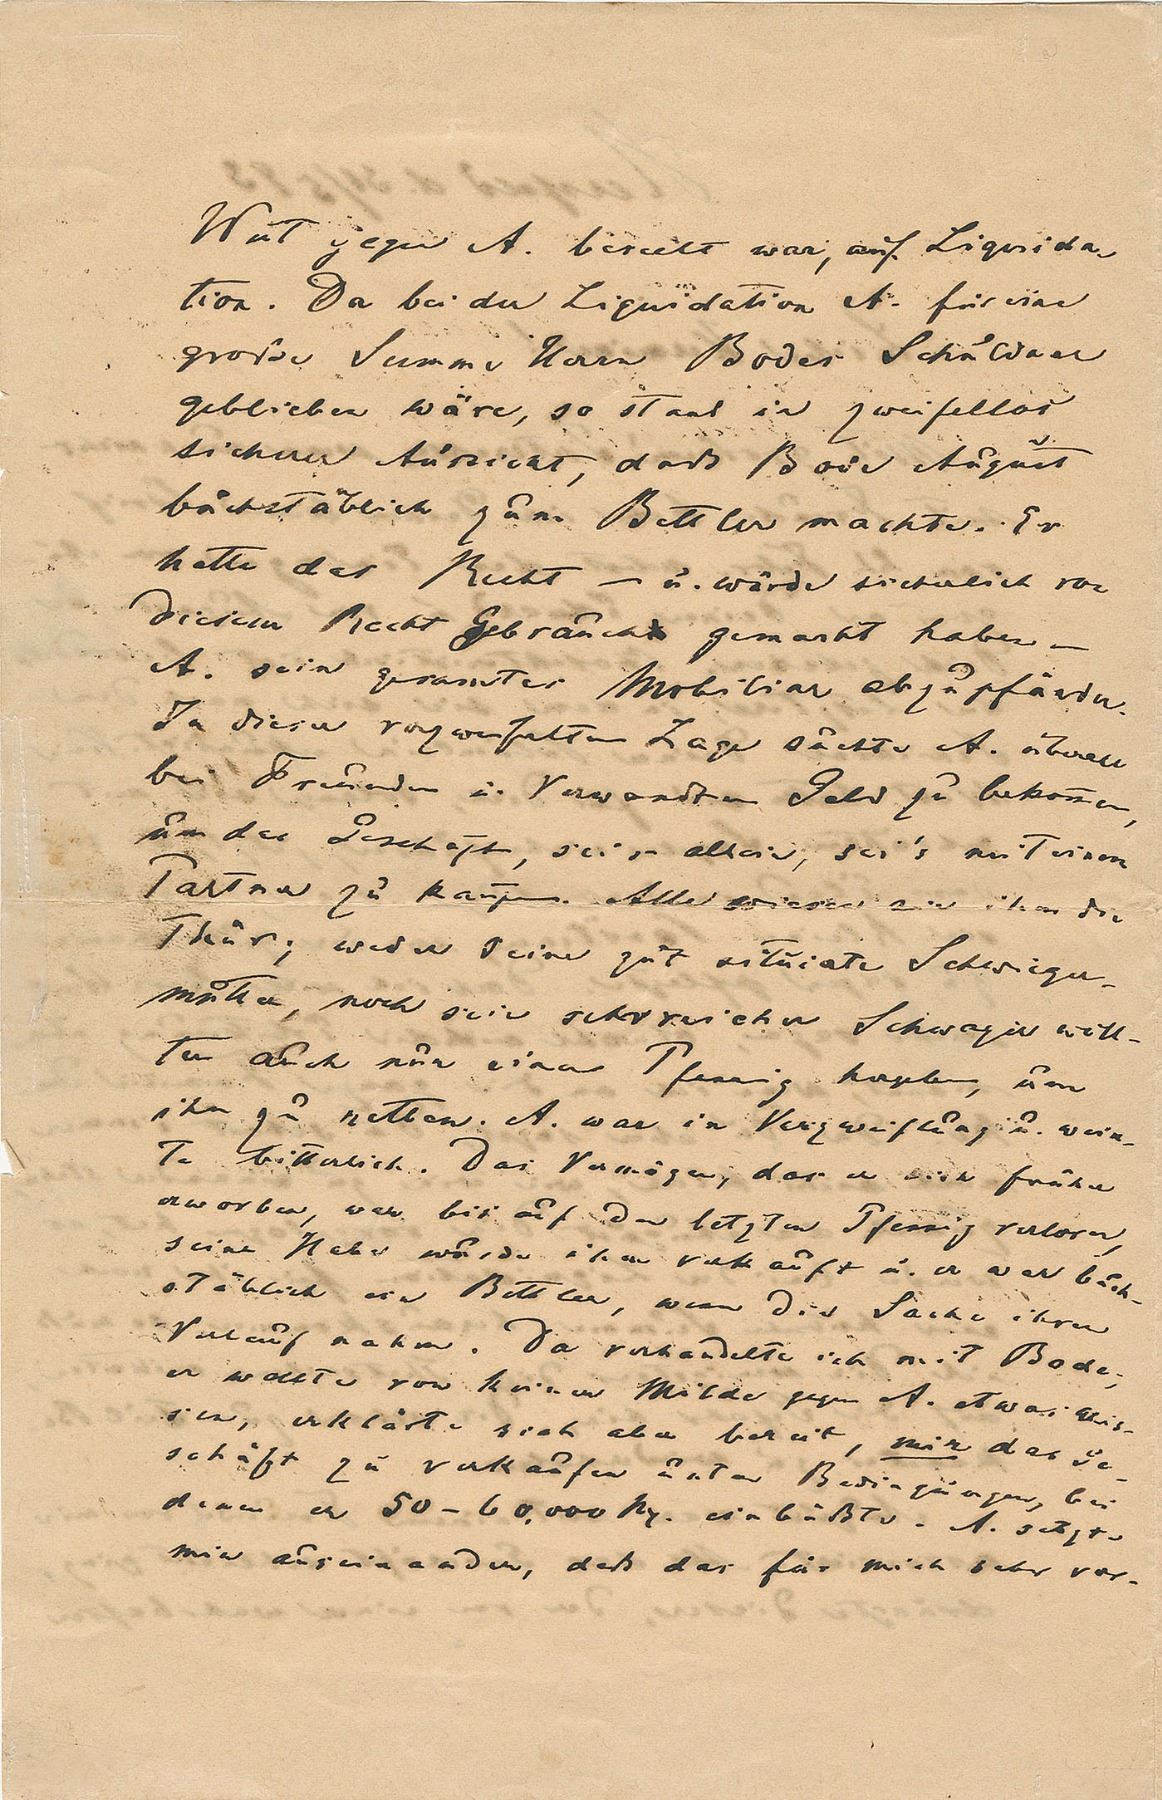 Wut gegen A. beseelt war, auf Liquida-
tion. Da bei der Liquidation A. für eine
große Summe Herrn Bodes Schuldner
geblieben wäre, so stand in zweifellos
sicherer Aussicht, daß Bode August
buchstäblich zum Bettler machte. Er
hatte das Recht – u. würde sicherlich von
diesem Recht Gebrauch gemacht haben –
A. sein gesamtes Mobiliar abzupfänden.
In dieser verzweifelten Lage suchte A. überall
bei Freunden u. Verwandten Geld zu bekommen,
um das Geschäft, sei's allein, sei's mit einem
Partner zu kaufen. Alle wiesen ihm die
Thür; weder seine gut situierte Schwieger-
mutter, noch sein sehr reicher Schwager woll-
ten auch nur einen Pfennig hergeben, um
ihn zu retten. A. war in Verzweiflung u. wein-
te bitterlich. Das Vermögen, das er sich früher
erworben, war bis auf den letzten Pfennig verloren,
seine Habe würde ihm verkauft u. er war buch-
stäblich ein Bettler, wenn die Sache ihren
Verlauf nahm. Da verhandelte ich mit Bode;
er wollte von keiner Milde gegen A. etwas wis-
sen, erklärte sich aber bereit, mir das Ge-
schäft zu verkaufen unter Bedingungen, bei
denen er 50–60,000 M. einbüßte. A. setzte
mir auseinander, daß das für mich sehr vor-